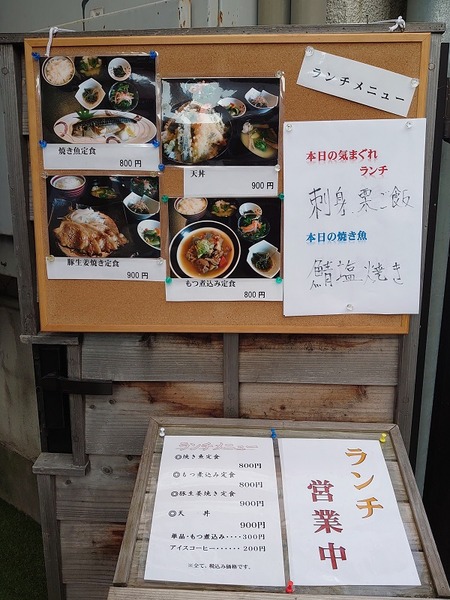 ランチメニュー
焼き魚定食
800円
天丼
900円
豚生姜焼き定食
900円
もつ煮込み定食
800円
本日の気まぐれ
ランチ
刺身、栗ご飯
本日の焼き魚
鯖塩焼き
ランチメニュー
◎焼き魚定食
800円
◎もつ煮込み定食
800円
◎豚生姜焼き定食
900円
◎天 丼
900円
単品・もつ煮込み・・・・300円
アイスコーヒー・・・・・・200円
※全て、税込み価格です。
ランチ
営業中